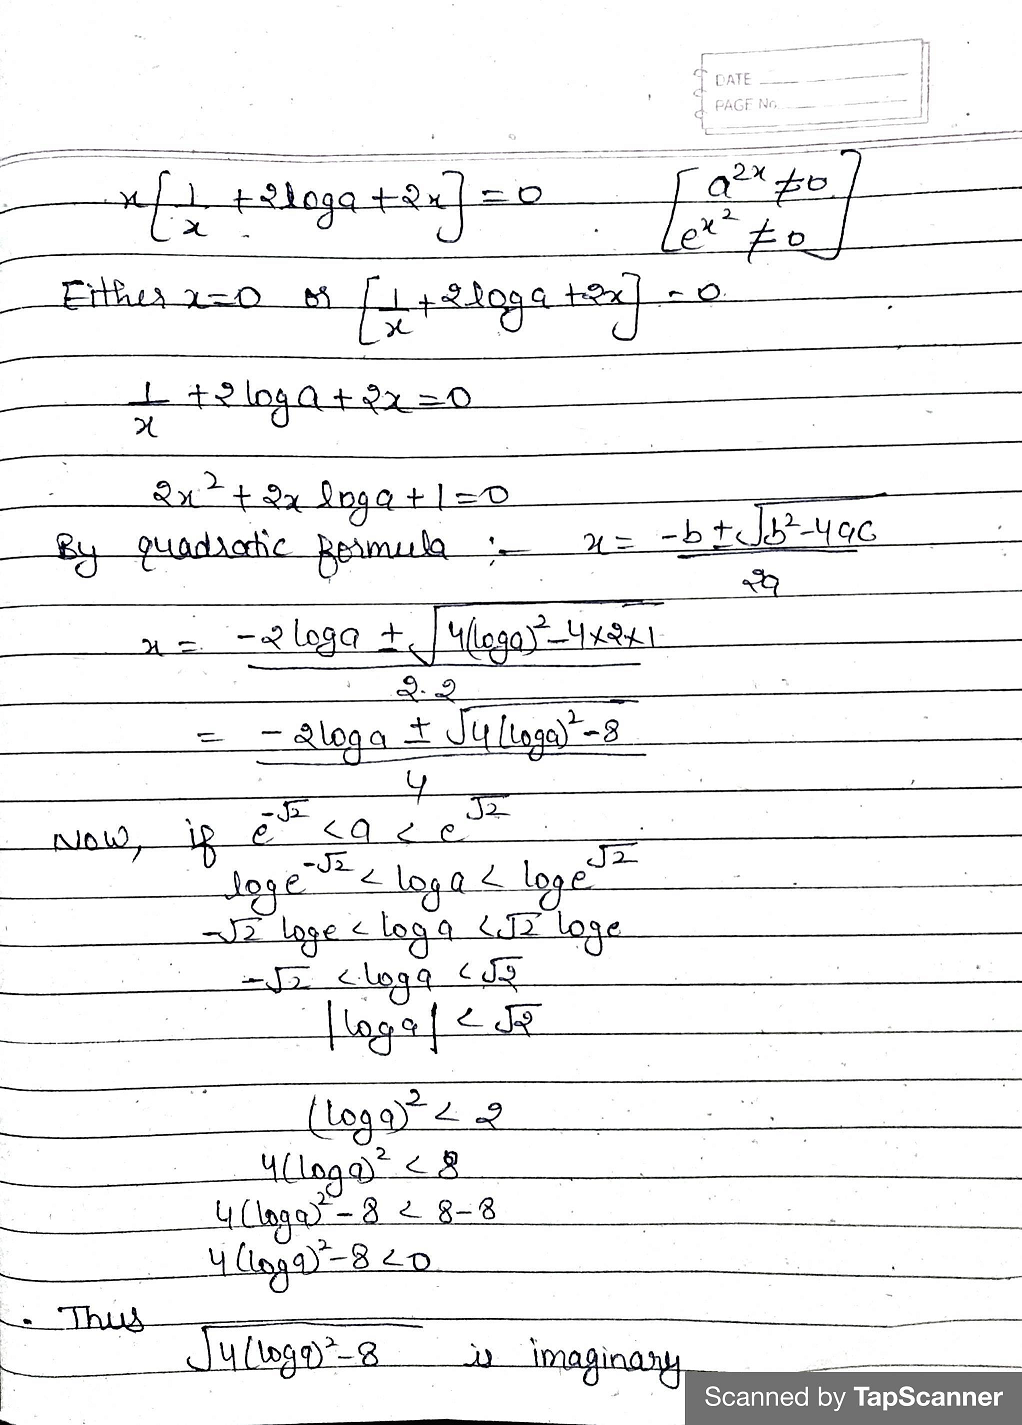 DATE
PAGE No.
x[1/x + 2loga + 2x] = 0 [a^2x ≠ 0
e^x^2 ≠ 0]
Either x=0 or [1/x + 2loga + 2x] = 0.
1/x + 2 log a + 2x = 0
2x^2 + 2x loga + 1 = 0
By quadratic formula :- x = (-b ± √(b^2-4ac))/2a
x = (-2loga ± √(4(loga)^2-4×2×1))/2.2
= (-2loga ± √(4(loga)^2-8))/4
Now, if e^-√2 < a < e^√2
loge^-√2 < loga < loge^√2
-√2 loge < loga < √2 loge
-√2 < loga < √2
|loga| < √2
(loga)^2 < 2
4(loga)^2 < 8
4(loga)^2 - 8 < 8-8
4(loga)^2-8 < 0
. Thus
√(4(loga)^2-8) is imaginary
Scanned by TapScanner